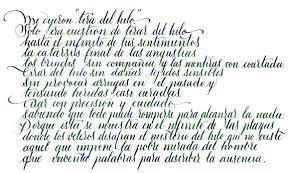 Me dijeron "tira del hilo"
Solo era cuestión de tirar del hilo
hasta el infinito de tus sentimientos
la catarsis final de las angustias
los brindis sin compañía y las mentiras con coartada
Tirar del hilo sin dañar tejidos sensibles
sin provocar arrugas en el pasado y
tensando heridas casi curadas
Tirar con precisión y cuidado
sabiendo que todo puede romperse para alcanzar la nada.
Porque esta se muestra en el infinito de las plazas
donde los olvidos desafían el misterio del hilo que no existe
aquel que impone la pobre mirada del hombre
que inventa palabras para describir la ausencia.